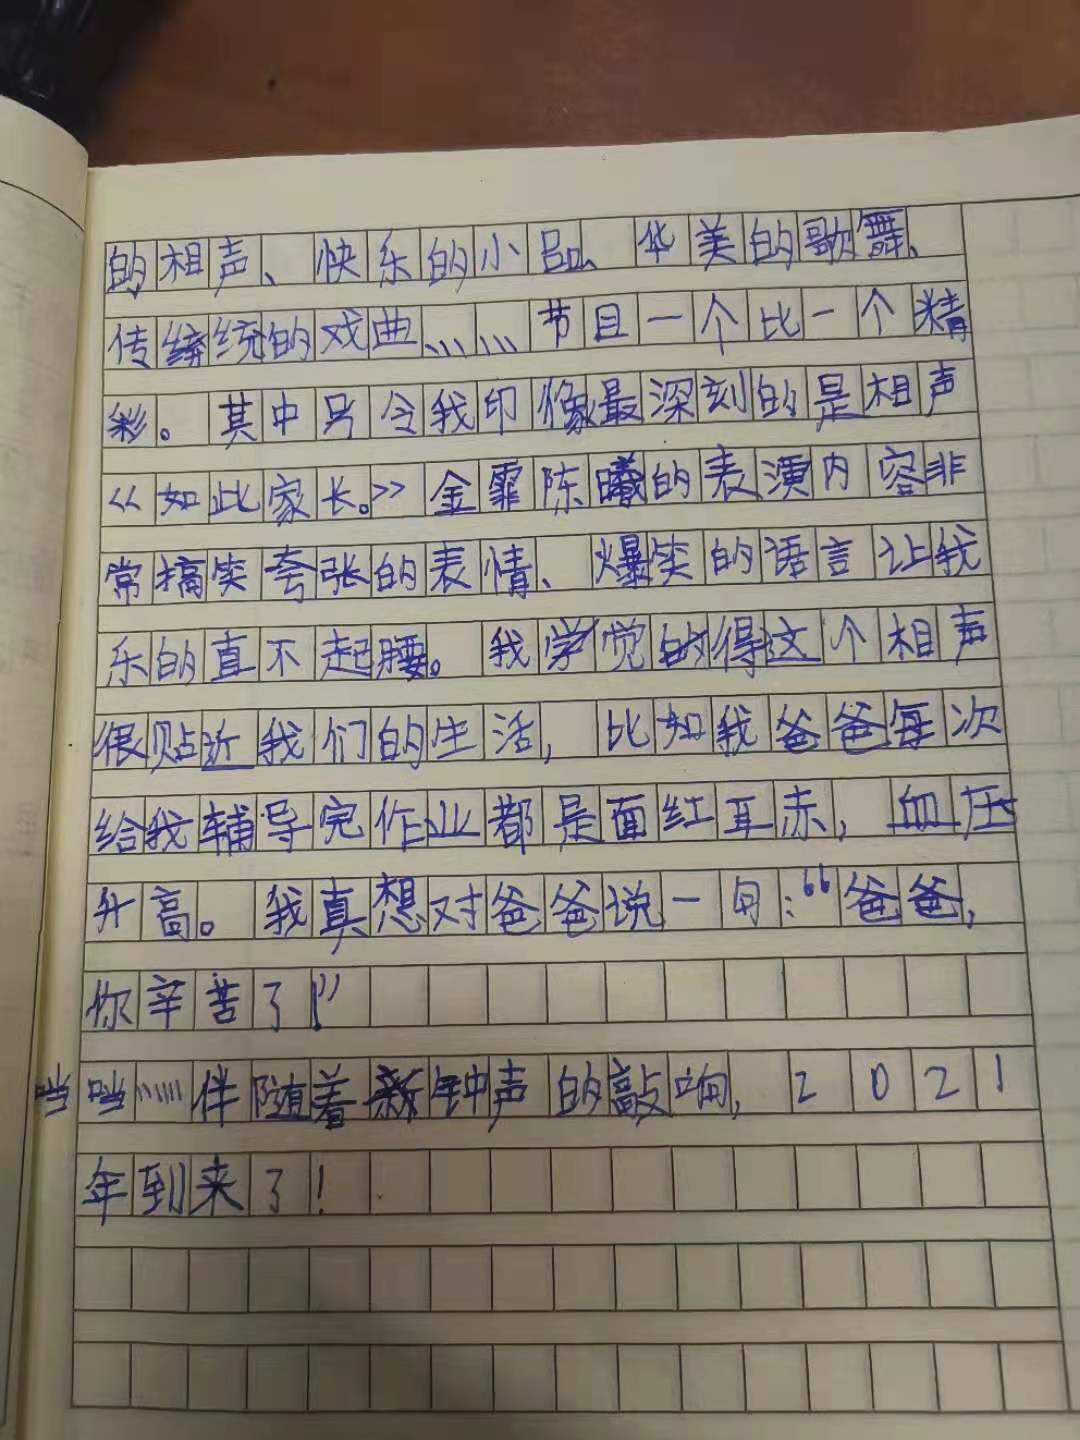 的相声、快乐的小品、华美的歌舞、
传统的戏曲……节目一个比一个精
彩。其中另令我印像最深刻的是相声
《如此家长。》金霏陈曦的表演内容非
常搞笑夸张的表情、爆笑的语言让我
乐的直不起腰。我觉得这个相声
很贴近我们的生活，比如我爸爸每次
给我辅导完作业都是面红耳赤，血压
升高。我真想对爸爸说一句：“爸爸，
你辛苦了！”
当当……伴随着新钟声的敲响，2021
年到来了！